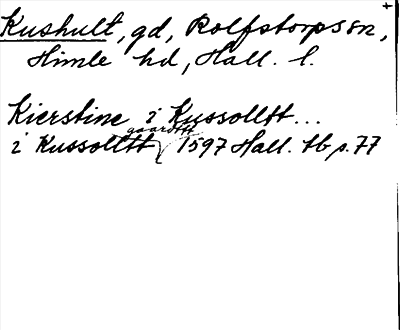 +
Kushult, gd, Rolfstorps sn,
Himle hd, Hall. l.
Kierstine i Kussolltt...
gaardtt
i Kussolltt 1597 Hall. tb p. 77